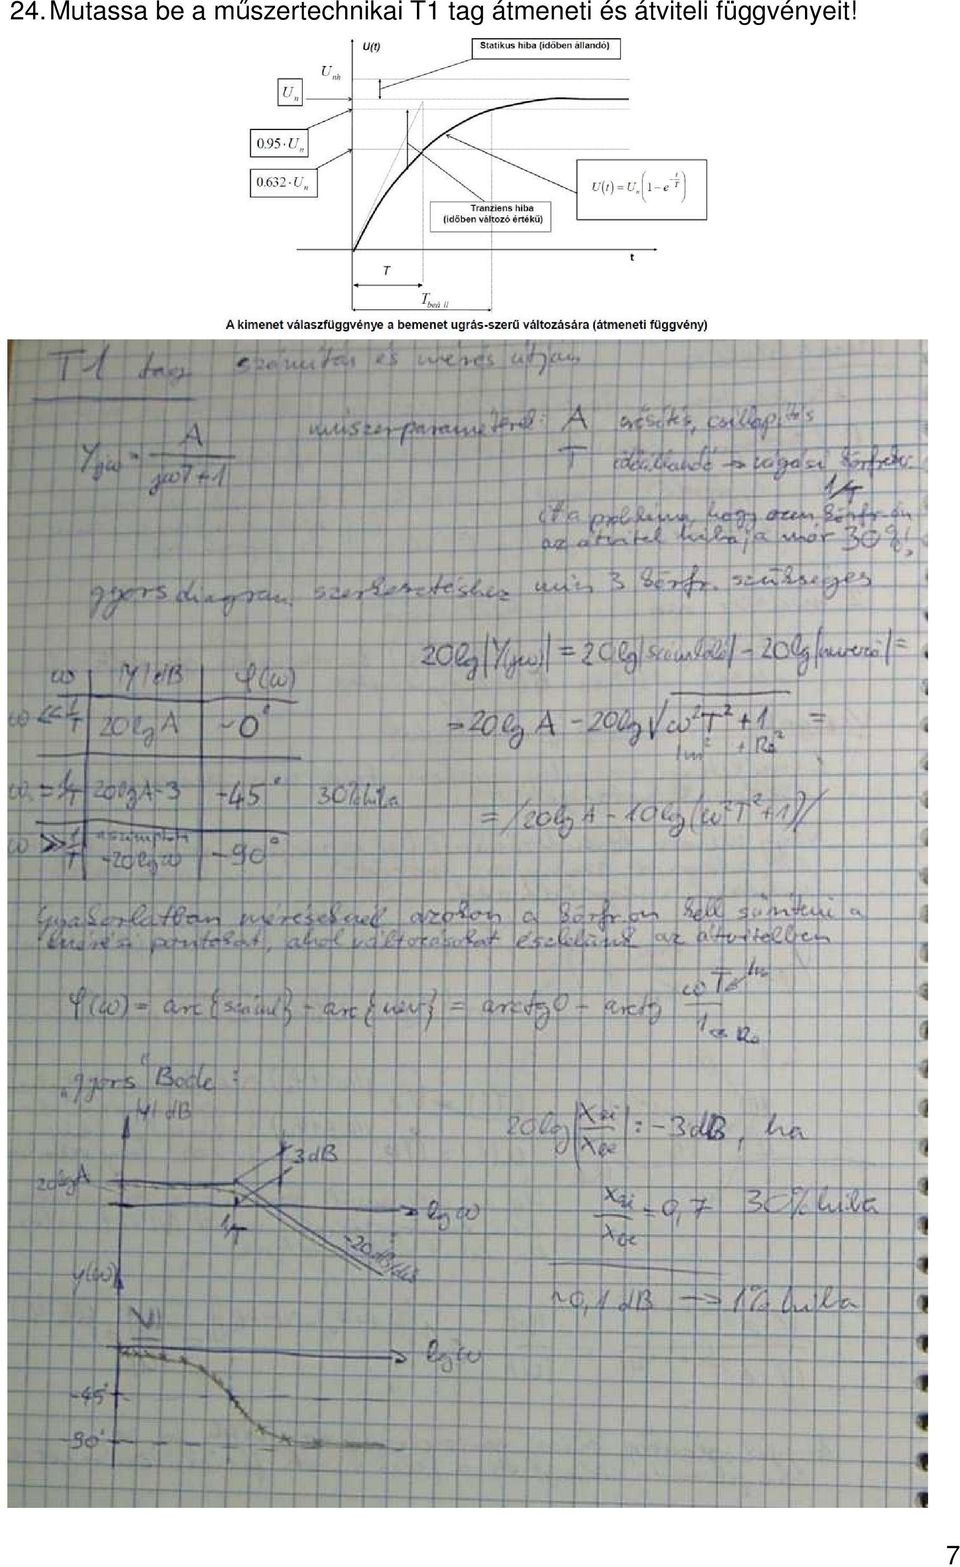 24. Mutassa be a műszertechnikai T1 tag átmeneti és átviteli függvényeit!
U(t)
Statikus hiba (időben állandó)
U_nh
U_n
0.95·U_n
0.632·U_n
U(t) = U_n(1 − e^(−t/T))
Tranziens hiba
(időben változó értékű)
t
T
T_beáll
A kimenet válaszfüggvénye a bemenet ugrás-szerű változására (átmeneti függvény)
T1 tag számítás és mérés útján
Yjω = A / (jωT+1)
műszerparaméterek: A erősítés, csillapítás
T időállandó → vágási körfrekv.
1/T
itt a probléma, hogy ezen körfr-án
az átvitel hibája már 30%!
gyors diagram szerkesztéshez min 3 körfr. szükséges
20lg|Y(jω)| = 20lg|számláló| − 20lg|nevező| =
ω |Y| dB φ(ω)
ω << 1/T 20lgA ~0°
= 20lg A − 20lg √(ω²T²+1) =
Im² + Re²
ω = 1/T 20lgA-3 -45° 30% hiba
= /20lg A − 10lg(ω²T²+1)/
ω >> 1/T -20lgω -90°
Gyakorlatban méréseknél azokon a körfr-on kell sűríteni a
mérési pontokat, ahol változásokat észlelünk az átvitelben
φ(ω) = arc{száml} − arc{nev} = arctg0 − arctg ωT ← Im / 1 ← Re
"gyors" Bode:
|Y| dB
20lg|Xki/Xbe| = -3dB, ha
3dB
20lgA
lg ω
1/T
-20dB/dek
Xki/Xbe = 0,7 30% hiba
φ(ω)
~0,1 dB → 1% hiba
lg ω
-45°
-90°
7